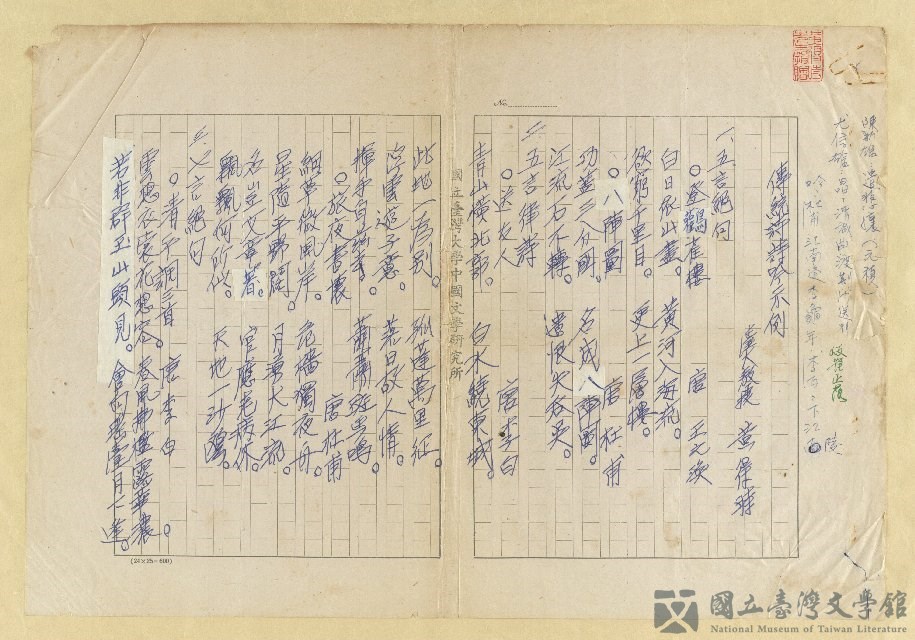 傳統詩詩吟示例
黃敏授 黃
一、五言絕句
。登鸛雀樓 唐 王之渙
白日依山盡。黃河入海流。
欲窮千里目。更上一層樓。
。八陣圖 唐 杜甫
功蓋三分國。名成八陣圖。
江流石不轉。遺恨失吞吳。
二、五言律詩
。送友人 唐 李白
青山橫北郭。白水繞東城。
此地一為別。孤蓬萬里征。
浮雲遊子意。落日故人情。
揮手自茲去。蕭蕭班馬鳴。
。旅夜書懷 唐 杜甫
細草微風岸。危檣獨夜舟。
星隨平野闊。月湧大江流。
名豈文章著。官應老病休。
飄飄何所似。天地一沙鷗。
三、七言絕句
。清平調三首 唐 李白
雲想衣裳花想容。春風拂檻露華濃。
若非群玉山頭見。會向瑤臺月下逢。
國立臺灣大學中國文學研究所
No.
(24×25=600)
國立臺灣文學館
National Museum of Taiwan Literature